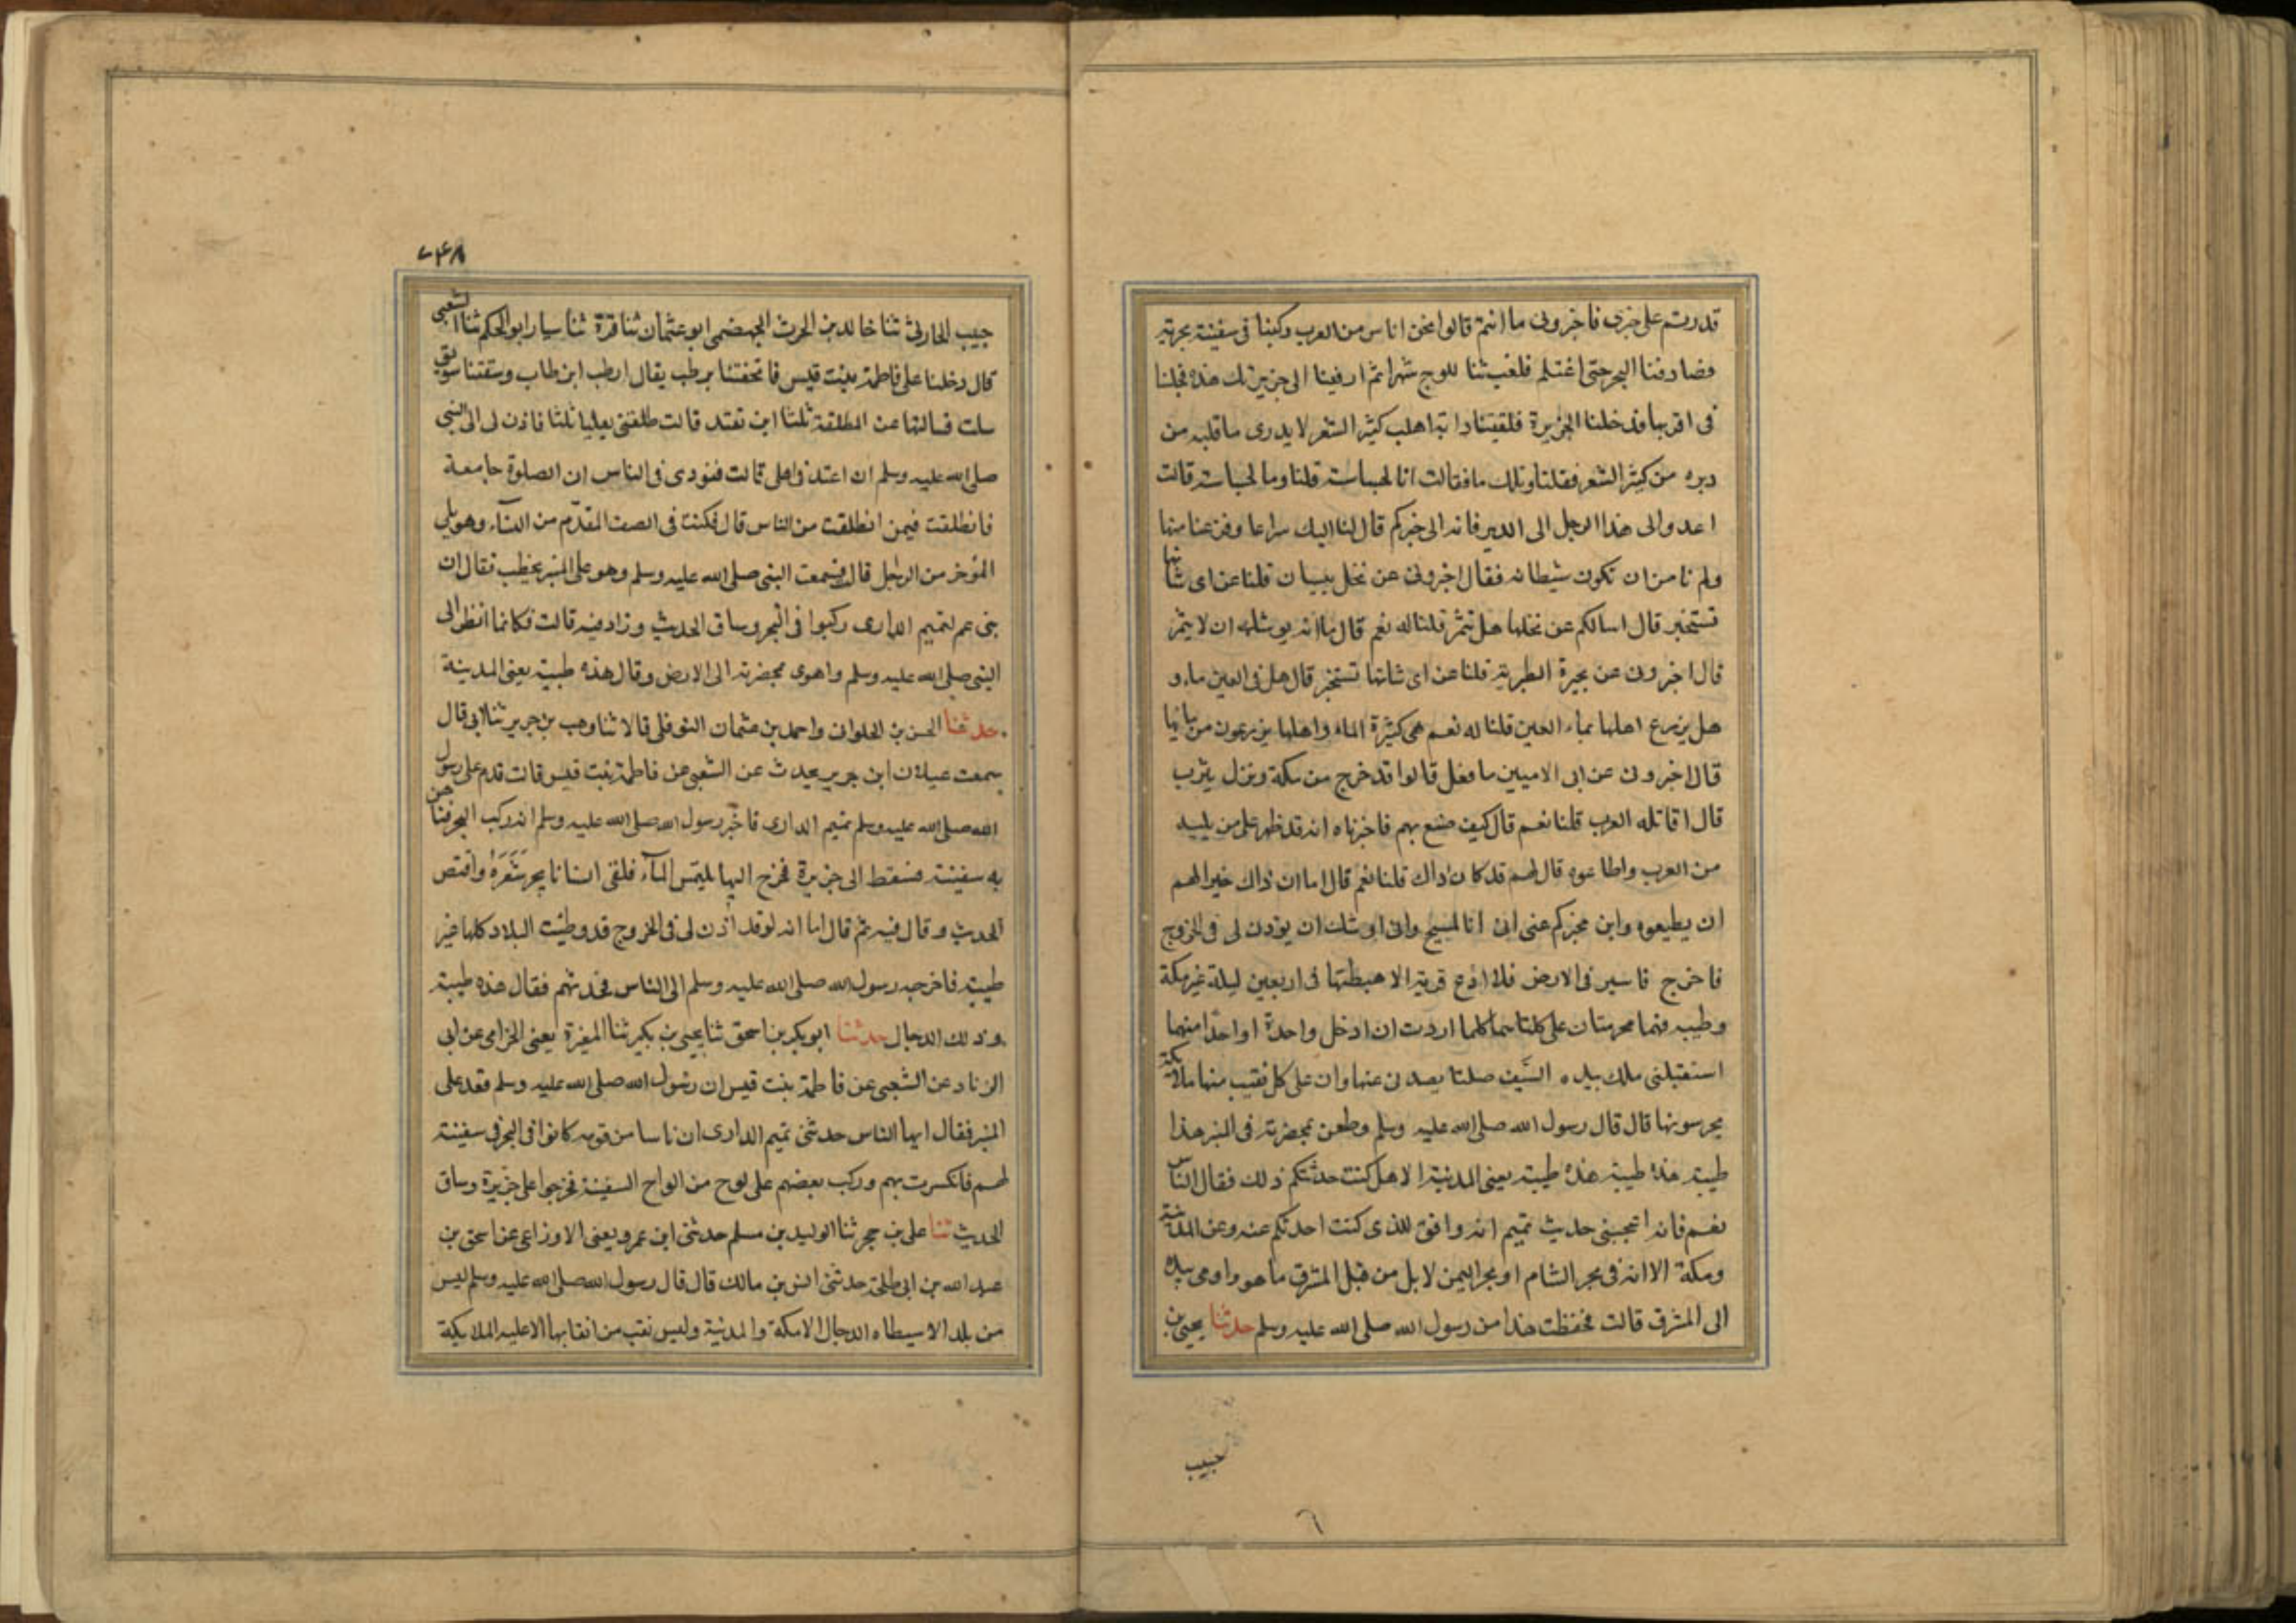 قدرتم على خبرى فاخبرونى ما انتم قالوا نحن اناس من العرب ركبنا فى سفينة بحرية
فصادفنا البحر حتى اغتلم فلعب بنا الموج شهرا ثم ارفينا الى جزيرتك هذه فجلسنا
فى اقربها فدخلنا الجزيرة فلقيتنا دابة اهلب كثير الشعر لا يدرى ما قبله من
دبره من كثير الشعر فقلنا ويلك ما فقالت انا الجساسة قلنا وما الجساسة قالت
اعدوا الى هذا الرجل الى الدير فانه الى خبركم قال لنا اليك سراعا وفزعنا منها
ولم نامن ان تكون شيطانه فقال اخبرونى عن نخل بيسان قلنا عن اى شانها
تستخبر قال اسالكم عن نخلها هل تثمر قلنا له نعم قال اما انه يوشك ان لا يثمر
قال اخبرونى عن بحيرة الطبرية قلنا عن اى شانها تستخبر قال هل فى العين ماء و
هل يزرع اهلها بماء العين قلنا له نعم هى كثيرة الماء واهلها يزرعون من مائها
قال اخبرونى عن ابى الاميين ما فعل قالوا قد خرج من مكة ونزل يثرب
قال اقاتله العرب قلنا نعم قال كيف صنع بهم فاخبرناه انه قد ظهر على من يليه
من العرب واطاعوه قال لهم قد كان ذاك قلنا نعم قال اما ان ذاك خير لهم
ان يطيعوه وانى مخبركم عنى انى انا المسيح وانى اوشك ان يوذن لى فى الخروج
فاخرج فاسير فى الارض فلا ادع قرية الا هبطتها فى اربعين ليلة غير مكة
وطيبه فهما محرمتان على كلتاهما كلما اردت ان ادخل واحدة او احدا منهما
استقبلنى ملك بيده السيف صلتا يصدنى عنها وان على كل نقب منها ملائكة
يحرسونها قال قال رسول الله صلى الله عليه وسلم وطعن بمخصرته فى المنبر هذا
طيبة هذه طيبة هذه طيبة يعنى المدينة الا هل كنت حدثتكم ذلك فقال الناس
نعم فانه اعجبنى حديث تميم انه وافق للذى كنت احدثكم عنه وعن المدينة
ومكة الا انه فى بحر الشام او بحر اليمن لا بل من قبل المشرق ما هو واومى بيده
الى المشرق قالت فحفظت هذا من رسول الله صلى الله عليه وسلم حدثنا يحيى بن
حبيب
٦
حبيب الحارثى ثنا خالد بن الحرث الهجيمى ابو عثمان ثنا قرة ثنا سيار ابو الحكم ثنا الشعبى
قال دخلنا على فاطمة بنت قيس فاتحفتنا برطب يقال رطب ابن طاب وسقتنا سويق
سلت فسالتها عن المطلقة ثلثا اين تعتد قالت طلقنى بعلى ثلثا فاذن لى النبى
صلى الله عليه وسلم ان اعتد فى اهلى قالت فنودى فى الناس ان الصلوة جامعة
فانطلقت فيمن انطلقت من الناس قال فكنت فى الصف المقدم من النساء وهو يلى
المؤخر من الرجل قال فسمعت النبى صلى الله عليه وسلم وهو على المنبر يخطب فقال ان
بنى عم لتميم الدارى ركبوا فى البحر وساق الحديث وزاد فيه قالت فكانما انظر الى
النبى صلى الله عليه وسلم واهوى بمخصرته الى الارض وقال هذه طيبة يعنى المدينة
حدثنا الحسن بن الحلوانى واحمد بن عثمان النوفلى قالا ثنا وهب بن جرير ثنا ابى قال
سمعت غيلان ابن جرير يحدث عن الشعبى عن فاطمة بنت قيس قالت قدم على رسول
الله صلى الله عليه وسلم تميم الدارى فاخبر رسول الله صلى الله عليه وسلم انه ركب البحر فتاهت
به سفينته فسقط الى جزيرة فخرج اليها يلتمس الماء فلقى انسانا يجر شعره واقتص
الحديث وقال فيه ثم قال اما انه لو قد اذن لى فى الخروج قد وطئت البلاد كلها غير
طيبة فاخرجه رسول الله صلى الله عليه وسلم الى الناس فحدثهم فقال هذه طيبة
وذلك الدجال حدثنا ابو بكر بن اسحق ثنا يحيى بن بكير ثنا المغيرة يعنى الحزامى عن ابى
الزناد عن الشعبى عن فاطمة بنت قيس ان رسول الله صلى الله عليه وسلم قعد على
المنبر فقال ايها الناس حدثنى تميم الدارى ان ناسا من قومه كانوا فى البحر فى سفينة
لهم فانكسرت بهم وركب بعضهم على لوح من الواح السفينة فخرجوا على جزيرة وساق
الحديث ثنا على بن حجر ثنا الوليد بن مسلم حدثنى ابن عمرو يعنى الاوزاعى عن اسحق بن
عبد الله بن ابى طلحة حدثنى انس بن مالك قال قال رسول الله صلى الله عليه وسلم ليس
من بلد الا سيطاه الدجال الا مكة والمدينة وليس نقب من انقابها الا عليه الملايكة